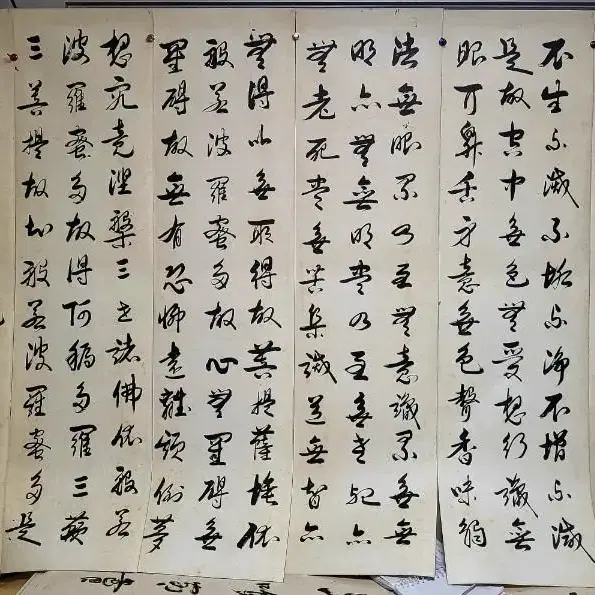 不生不滅不垢不淨不增不減
是故空中無色無受想行識無
眼耳鼻舌身意無色聲香味觸
法無眼界乃至無意識界無無
明亦無無明盡乃至無老死亦
無老死盡無苦集滅道無智亦
無得以無所得故菩提薩埵依
般若波羅蜜多故心無罣礙無
罣礙故無有恐怖遠離顛倒夢
想究竟涅槃三世諸佛依般若
波羅蜜多故得阿耨多羅三藐
三菩提故知般若波羅蜜多是